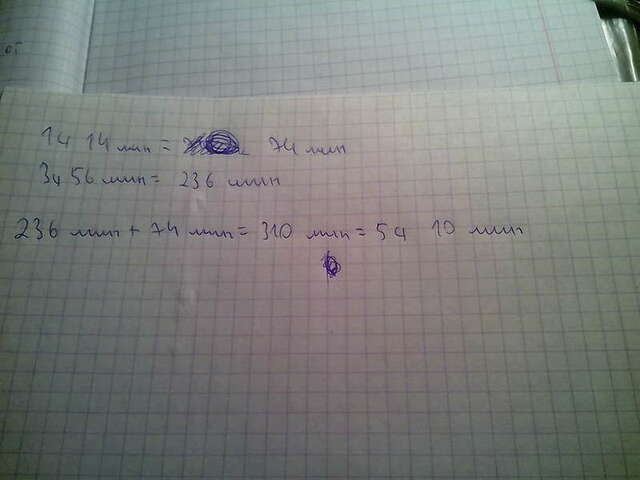 от
1ч 14 мин = 74 мин
3ч 56 мин = 236 мин
236 мин + 74 мин = 310 мин = 5ч 10 мин